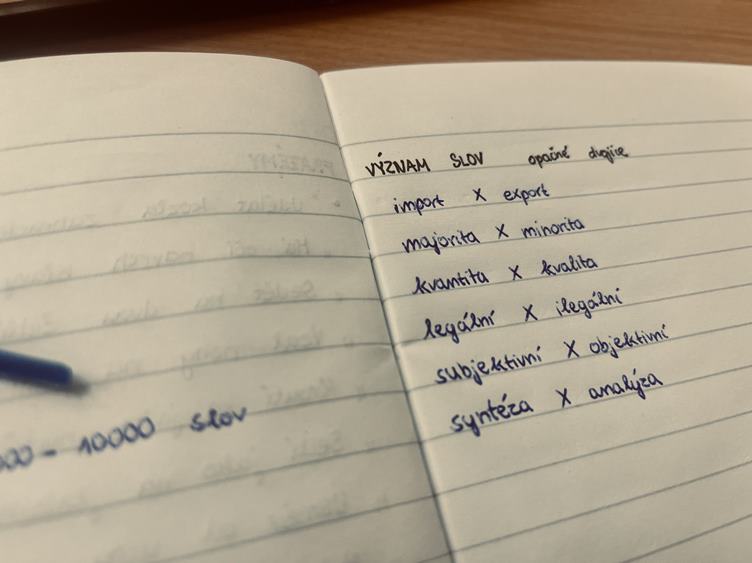 - 10000 slov
VÝZNAM SLOV opačné dvojice
import X export
majorita X minorita
kvantita X kvalita
legální X ilegální
subjektivní X objektivní
syntéza X analýza